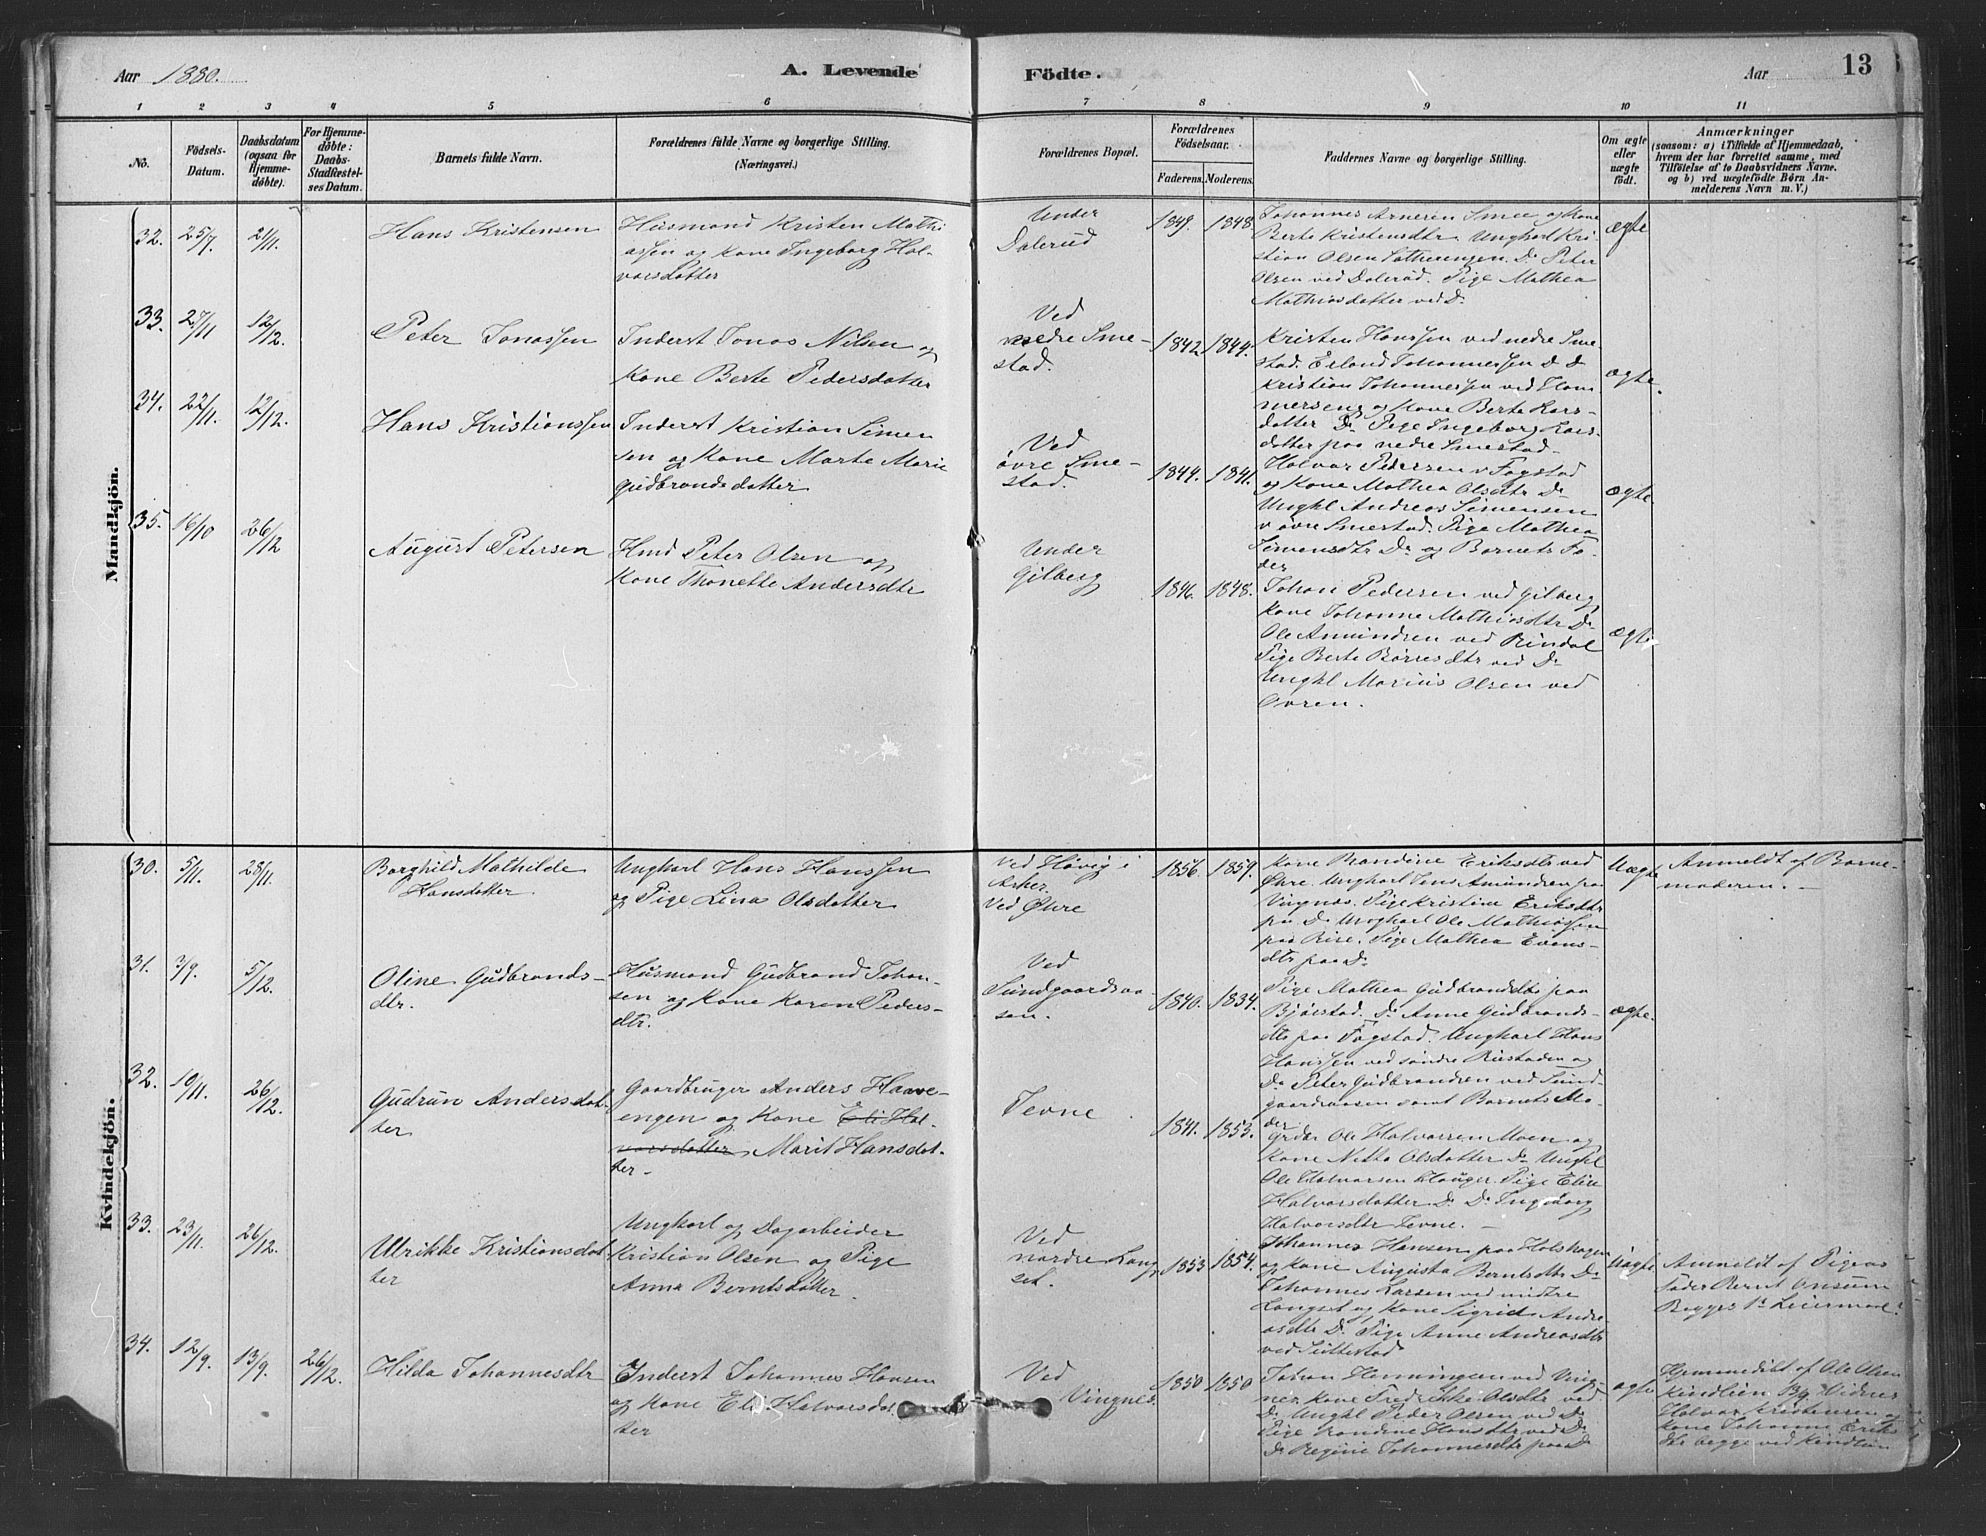 Aar 1880.
A. Levende
Födte.
Aar
13
1 2 3 4 5 6 7 8 9 10 11
No.
Födsels-
Datum.
Daabsdatum
(ogsaa for
Hjemme-
döbte).
For Hjemme-
döbte:
Daabs-
Stadfæstel-
ses Datum.
Barnets fulde Navn.
Forældrenes fulde Navne og borgerlige Stilling.
(Næringsvei.)
Forældrenes Bopæl.
Forældrenes
Födselsaar.
Faderens. Moderens.
Faddernes Navne og borgerlige Stilling.
Om ægte
eller
uægte
födt.
Anmærkninger
(saasom: a) i Tilfælde af Hjemmedaab,
hvem der har forrettet samme, med
Tilföielse af to Daabsvidners Navne,
og b) ved uægtefödte Börn An-
melderens Navn m. V.)
Mandkjön.
32. 25/7 21/11.
Hans Kristensen
Husmand Kristen Mathi
assen og Kone Ingeborg Hal-
vorsdatter
Under
Dalerud
1849. 1848.
Johannes Arnesen Smee og Kone
Berte Kristensdtr Ungkarl Kri-
stian Olsen Do Peter
Olsen ved Dalerud. Pige Mathea
Mathiasdatter ved Do
ægte
33. 27/11 12/12.
Peter Jonassen
Inderst Jonas Nilsen og
Kone Berte Pedersdatter
Ved
nedre Sme-
stad.
1842 1844.
Kristen Hanssen ved nedre Sme-
stad. Erland Johannessen D D
Kristian Johannessen ved Ham
merseng og Kone Berte Lars-
datter Do Pige Ingeborg Lars-
datter paa nedre Smestad
ægte.
34. 22/11. 12/12.
Hans Kristianssen
Inderst Kristian Simen
sen og Kone Marte Marie
Gudbrandsdatter
Ved
övre Sme-
stad.
1844. 1841.
Halvor Pedersen v Fogstad
og Kone Mathea Olsdtr Do
Ungkl Andreas Simensen
v övre Smestad. Pige Mathea
Simensdtr Do og Barnets Fa-
der
ægte
35. 16/10 26/12
August Petersen
Hmd Peter Olsen og
Kone Thonette Andersdtr
Under
Gilberg
1846. 1848.
Johan Pedersen ved Gilberg,
Kone Johanne Mathiasdtr Do
Ole Amundsen ved Rindal
Pige Berte Börresdtr ved Do
Ungkl Marius Olsen ved
Ovren.
ægte
Kvindekjön.
30. 5/11. 28/11.
Borghild Mathilde
Hansdatter.
Ungkarl Hans Hanssen
og Pige Lina Olsdatter
Ved Hövig i
Asker.
Ved Öhre
1856. 1859.
Kone Randine Eriksdtr ved
Öhre. Ungkarl Jens Amundsen paa
Vingnæs. Pige Kristine Eriksdtr
paa Do Ungkarl Ole Mathiassen
paa Rise. Pige Mathea Evens-
dtr paa Do
Uægte
Anmeldt af Barne-
moderen. -
31. 7/9. 5/12.
Oline Gudbrands-
dtr.
Husmand Gudbrand Johan-
sen og Kone Karen Peders-
dtr.
Ved
Sundgaardsaa-
sen.
1840. 1834.
Pige Mathea Gudbrandsdtr paa
Bjørstad. Do Anne Gudbrands-
dtr paa Fogstad. Ungkarl Hans
Hanssen ved söndre Rustaden og
Do Peter Gudbrandsen ved Sund-
gaardsaasen samt Barnets Mo-
der
ægte.
32. 10/11. 26/12.
Gudrun Andersdat-
ter
Gaardbruger Anders Haave-
engen og Kone Eli Hal-
vorsdatter, Marit Hansdat-
ter-
Jevne
1841. 1853.
Grdbr Ole Halvorsen Moen og
Kone Netta Olsdatter Do Ungkl
Ole Halvorsen Hauger. Pige Eline
Halvorsdatter Do Do Ingeborg
Halvorsdtr Jevne. -
33. 23/11. 26/12.
Ulrikke Kristiansdat
ter
Ungkarl og Dagarbeider
Kristian Olsen og Pige
Anna Berntsdatter.
Ved
nordre Lang
set.
1853 1854.
Johannes Hansen paa Holshagen
og Kone Augusta Berntsdtr Do
Johannes Larsen ved midtre
Langset og Kone Sigrid Andre-
asdtr Do Pige Anne Andreasdtr
ved Suttestad
Uægte
Anmeldt af Pigens
Fader Bernt Onsum
Begges 1ste Leiermaal.
34. 12/9. 13/9. 26/12.
Hilda Johannesdtr
Inderst Johannes Hansen
og Kone Eli Halvorsdat
ter
Ved
Vingnes.
1850 1850
Johan Henningsen ved Ving-
nes, Kone Fredrikke Olsdtr ved
Do Ungkl Peder Olsen ved Do
Pige Randine Hansdtr ved Do
Do Regine Johannesdtr paa Do
ægte
Hjemmedöbt af Ole Olsen
Kindlien Bg Vidner
Halvor Kristensen og
Kone Johanne Eriks
dtr begge ved Kindlien